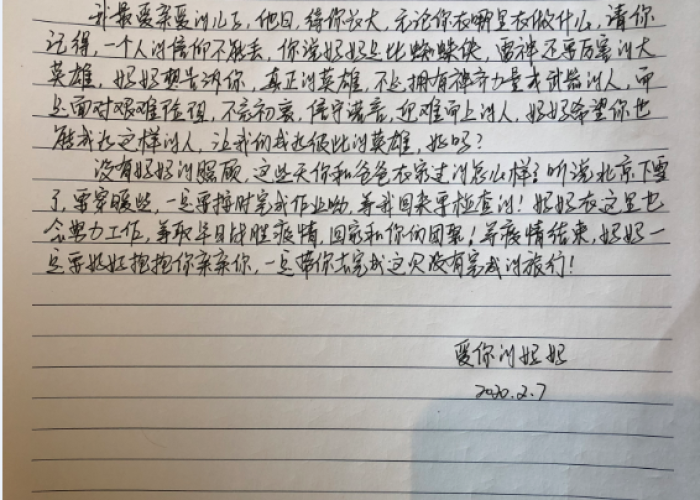 我最爱亲爱的儿子，他日，待你长大，无论你在哪里在做什么，请你
记得，一个人的信仰不能丢，你说妈妈是比蜘蛛侠，雷神还要厉害的大
英雄，妈妈想告诉你，真正的英雄，不是拥有神奇力量或武器的人，而
是面对艰难险阻，不忘初衷，信守诺言，迎难而上的人，妈妈希望你也
能成为这样的人，让我们成为彼此的英雄，好吗？
没有妈妈的照顾，这些天你和爸爸在家过的怎么样？听说北京下雪
了，要穿暖些，一定要按时完成作业呦，等我回来要检查的！妈妈在这里也
会努力工作，争取早日战胜疫情，回家和你们团聚！等疫情结束，妈妈一
定要好好抱抱你亲亲你，一定带你去完成这次没有完成的旅行！
爱你的妈妈
2020.2.7